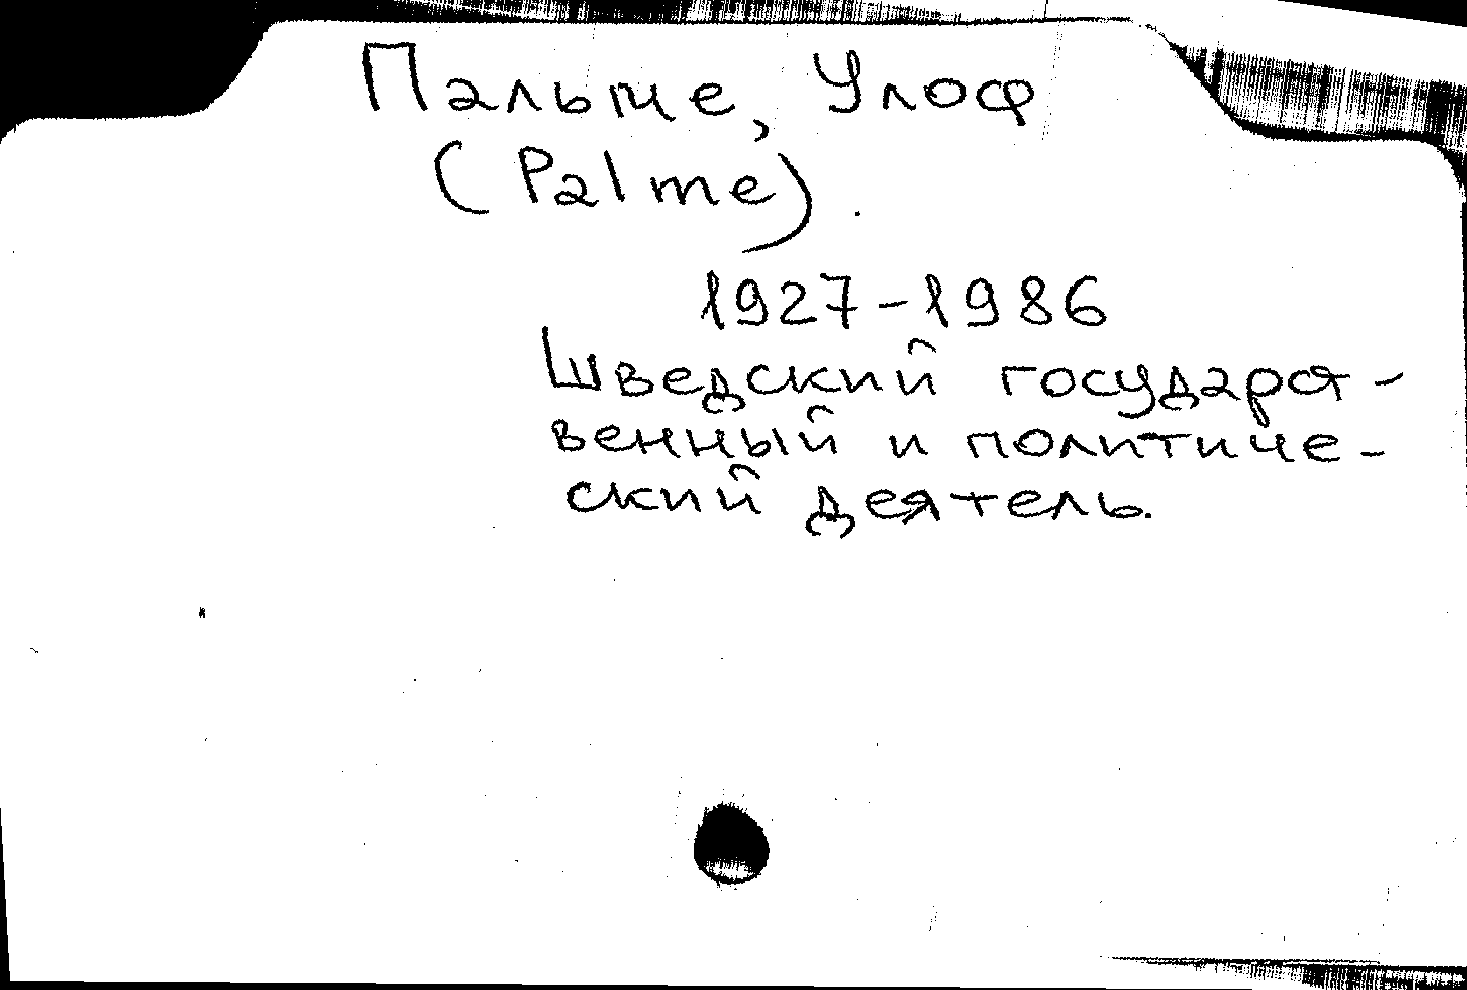 Пальме, Улоф
(Palme).
1927-1986
Шведский государст-
венный и политиче-
ский деятель.